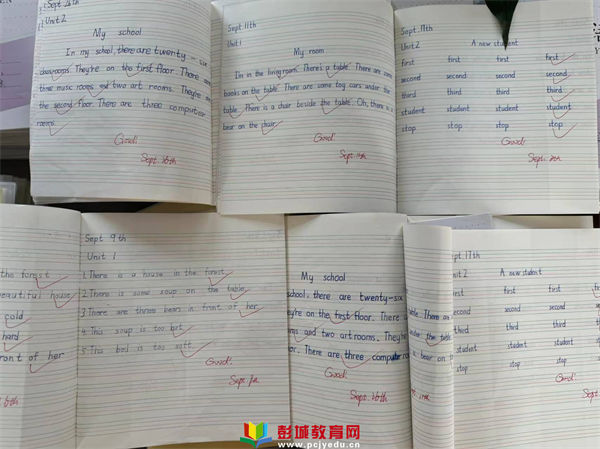 Sept. 26th
Unit 2
My school
In my school, there are twenty-six
classrooms. They're on the first floor. There are
three music rooms and two art rooms. They're on
the second floor. There are three computer
rooms.
Good!
Sept. 26th
Sept. 11th
Unit 1
My room
I'm in the living room. There's a table. There are some
books on the table. There are some toy cars under the
table. There is a chair beside the table. Oh, there is a
bear on the chair.
Good!
Sept. 11th
Sept. 17th
Unit 2 A new student
first first first first
second second second second
third third third third
student student student student
stop stop stop stop
Good!
Sept.
the forest
beautiful house
cold
hard
front of her
Sept 9th
Unit 1
1. There is a house in the forest.
2. There is some soup on the table.
3. There are three bears in front of her.
4. This soup is too hot.
5. This bed is too soft.
Good!
Sept. 9th
My school
school, there are twenty-six
They're on the first floor. There a
rooms and two art rooms. They're
floor. There are three computer roo
Good!
Sept. 26th
table. There are
under the
bear on
11th
Sept. 17th
Unit 2 A new student
first first first
second second second
third third third
student student student
stop stop stop
Good!
Sept.
彭城教育网
www.pcjyedu.cn